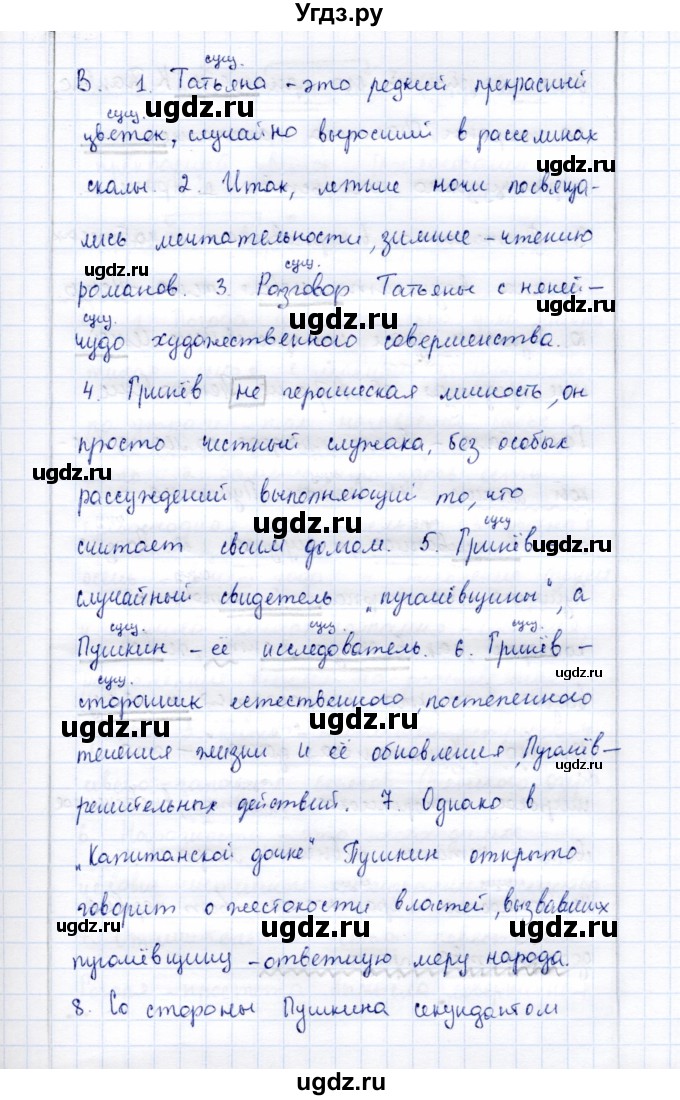 Угдз.ру
сущ.
В. 1. Татьяна - это редкий прекрасный
сущ.
цветок, случайно выросший в расселинах
скалы. 2. Итак, летние ночи посвяща-
лись мечтательности, зимние - чтению
сущ.
романов. 3 Разговор Татьяны с няней -
сущ.
чудо художественного совершенства.
4. Гринёв не героическая личность, он
просто честный служака, без особых
рассуждений выполняющий то, что
сущ
считает своим долгом. 5. Гринёв
случайный свидетель "пугачёвщины", а
сущ. сущ. сущ.
Пушкин - её исследователь. 6. Гринёв -
сущ.
сторонник естественного, постепенного
течения жизни и её обновления, Пугачёв -
решительных действий. 7. Однако в
"Капитанской дочке" Пушкин открыто
говорит о жестокости властей, вызвавших
пугачёвщину - ответную меру народа.
8. Со стороны Пушкина секундантом
ugdz.ru
ugdz.ru
ugdz.ru
ugdz.ru
ugdz.ru
ugdz.ru
ugdz.ru
ugdz.ru
ugdz.ru
ugdz.ru
ugdz.ru
ugdz.ru
ugdz.ru
ugdz.ru
ugdz.ru
ugdz.ru
ugdz.ru
ugdz.ru